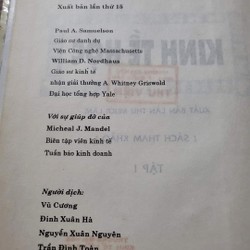 Xuất bản lần thứ 15
Paul A. Samuelson
Giáo sư danh dự
Viện Công nghệ Massachusetts
William D. Nordhaus
Giáo sư kinh tế
nhận giải thưởng A. Whitney Griswold
Đại học tổng hợp Yale
Với sự giúp đỡ của
Micheal J. Mandel
Biên tập viên kinh tế
Tuần báo kinh doanh
Người dịch:
Vũ Cương
Đinh Xuân Hà
Nguyễn Xuân Nguyên
Trần Đình Toàn
KINH TẾ
XUẤT BẢN LẦN THỨ
SÁCH THAM KHẢO
TẬP I